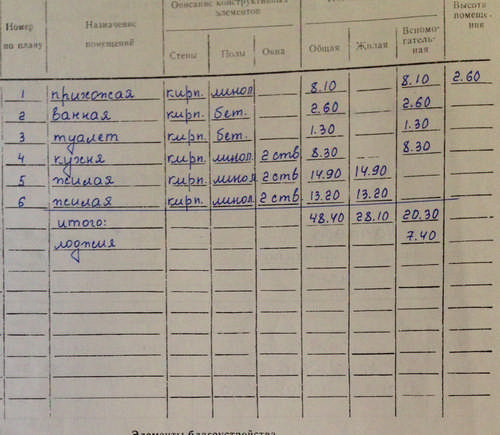 Номер по плану
Назначение помещений
Описание конструктивных элементов
Стены Полы Окна
Общая Жилая Вспомогательная
Высота помещения
1 прихожая кирп. линол 8.10 8.10 2.60
2 ванная кирп. бет. 2.60 2.60
3 туалет кирп. бет. 1.30 1.30
4 кухня кирп. линол 2 ств 8.30 8.30
5 жилая кирп. линол 2 ств 14.90 14.90
6 жилая кирп. линол 2 ств 13.20 13.20
итого: 48.40 28.10 20.30
лоджия 7.40
Элементы благоустройства